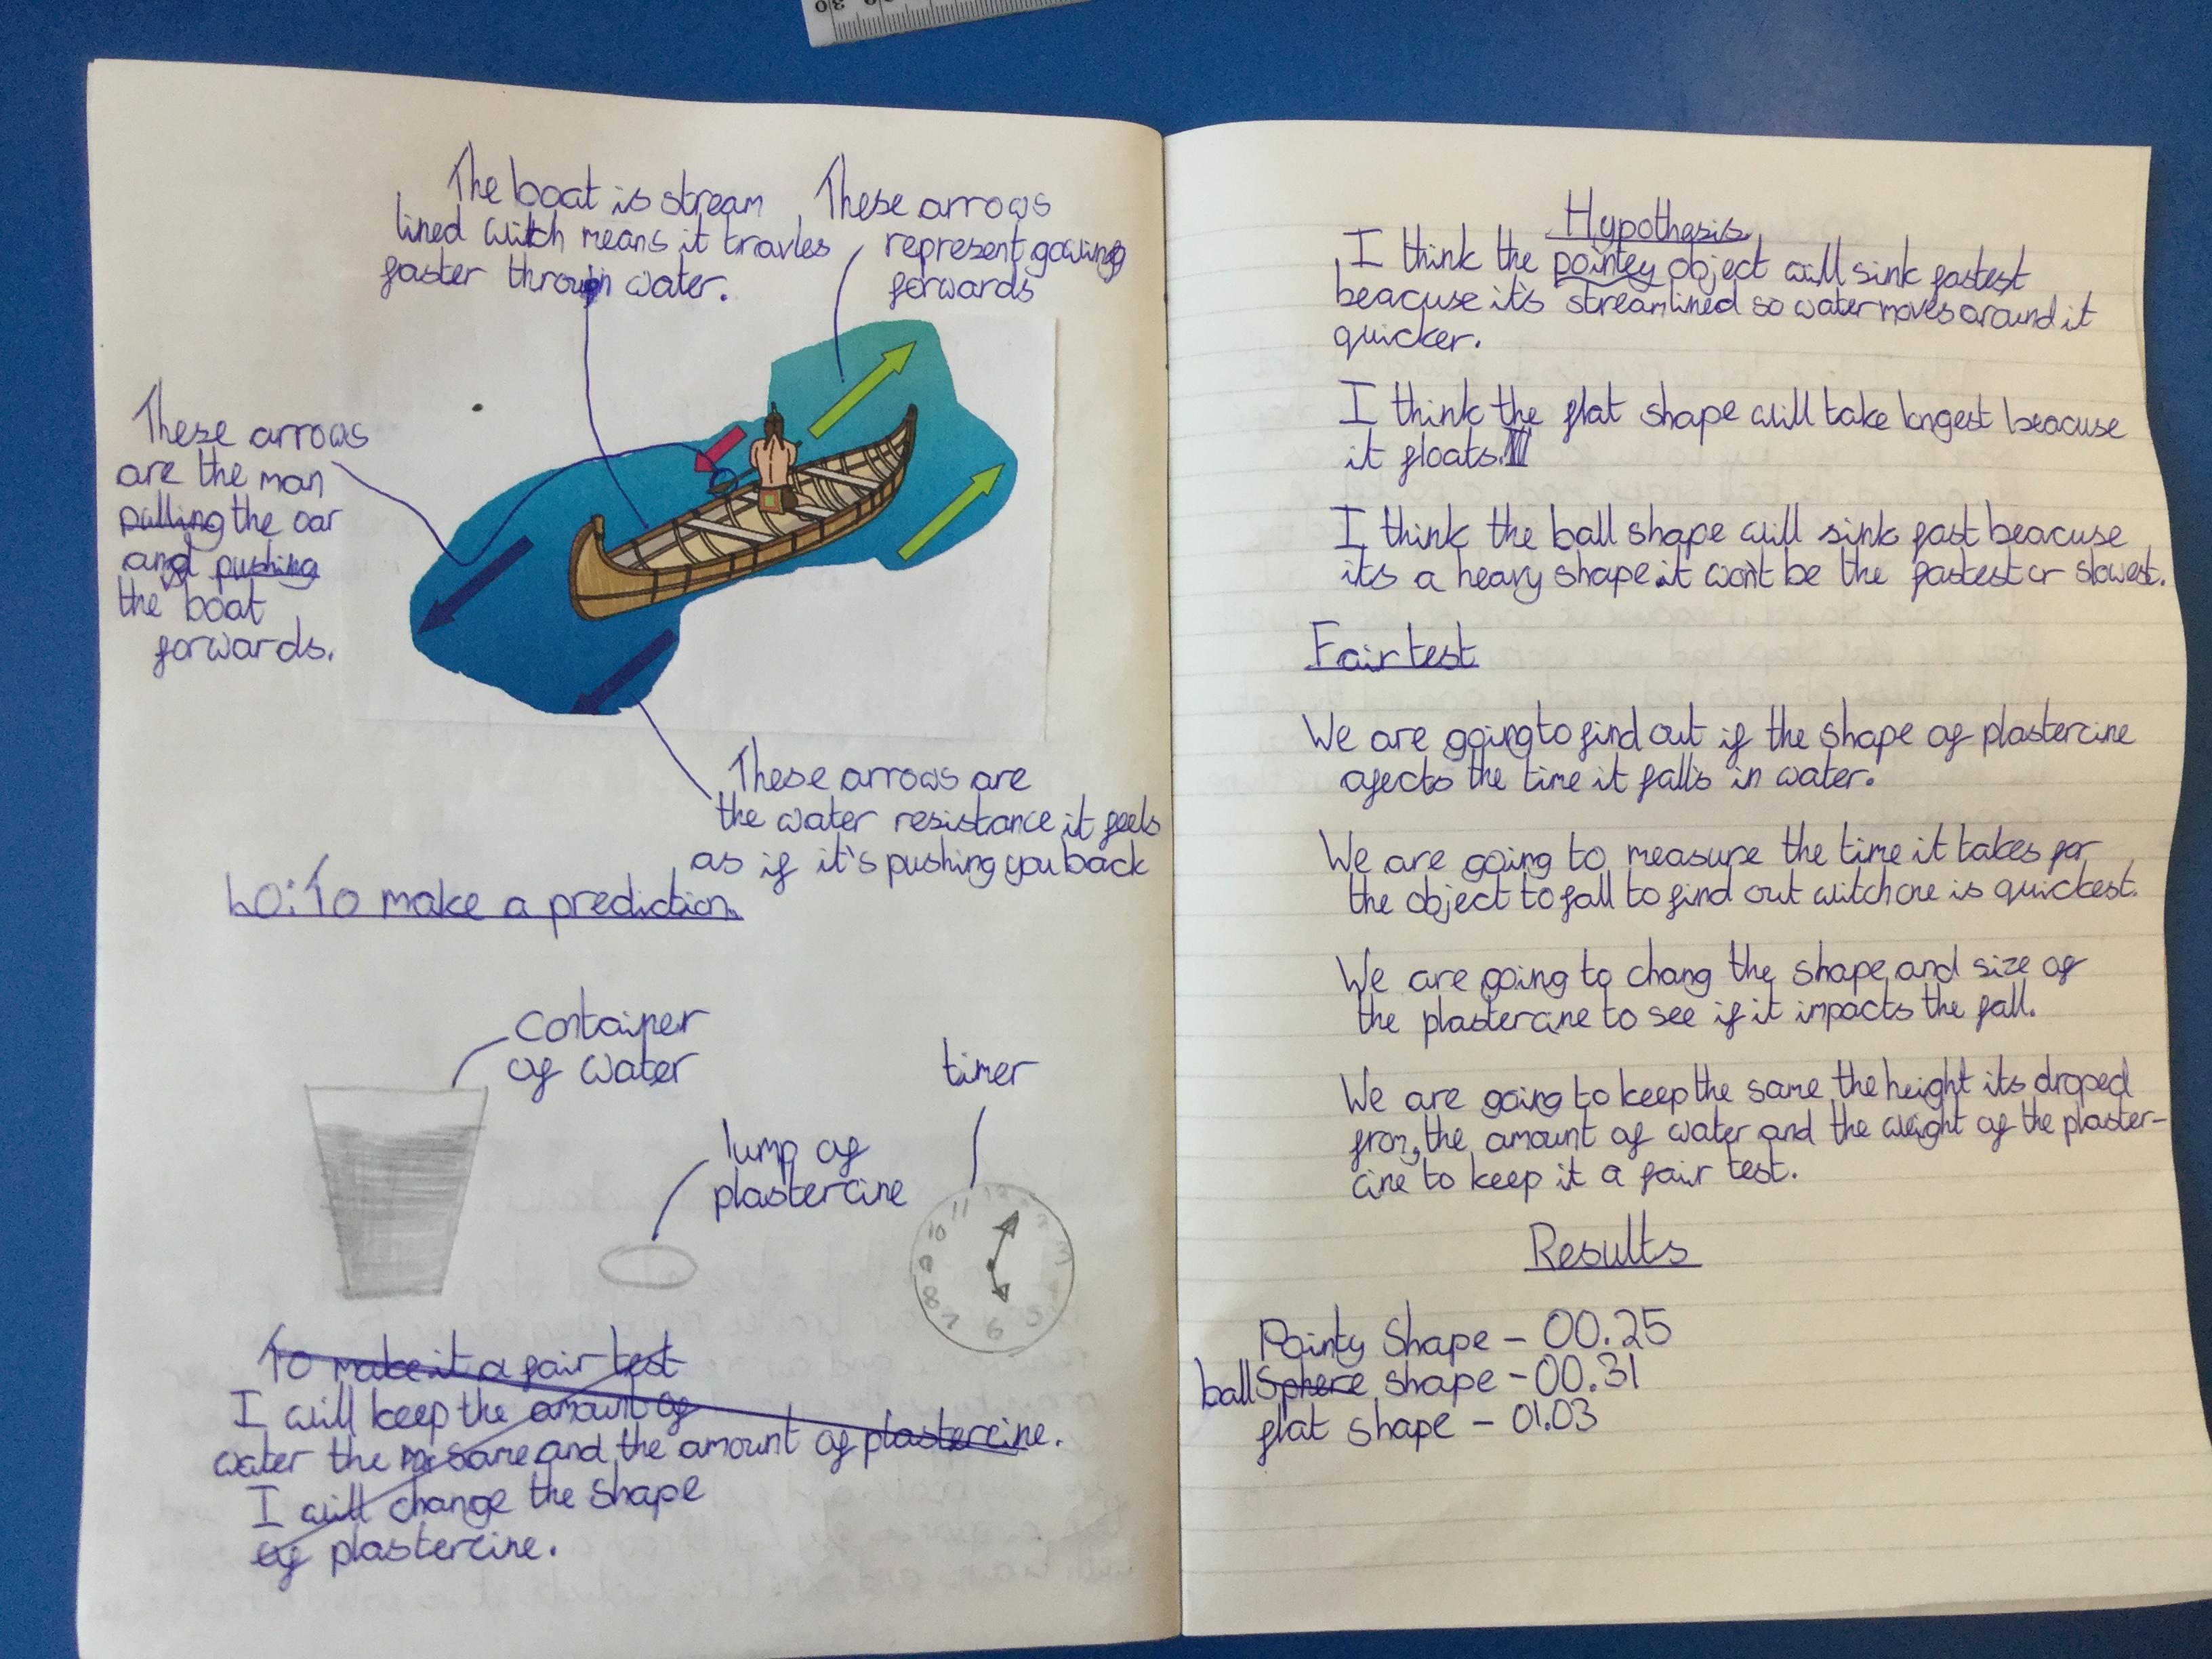 The boat is stream
lined witch means it travles
faster through water.
These arrows
represent gowing
forwards
These arrows
are the man
pulling the oar
and pushing
the boat
forwards.
These arrows are
the water resistance it feels
as if it's pushing you back
LO: To make a prediction.
container
of water
timer
lump of
plastercine
11 12
10 2
9 3
8 4
7 6 5
To make it a fair test
I will keep the amount of
water the same and the amount of plastercine.
I will change the shape
of plastercine.
Hypothesis
I think the pointey object will sink fastest
beacuse it's streamlined so water moves around it
quicker.
I think the flat shape will take longest beacuse
it floats.
I think the ball shape will sink fast beacuse
its a heavy shape it won't be the fastest or slowest.
Fair test
We are going to find out if the shape of plastercine
afects the time it falls in water.
We are going to measure the time it takes for
the object to fall to find out witch one is quickest.
We are going to chang the shape and size of
the plastercine to see if it impacts the fall.
We are going to keep the same the height its droped
from, the amount of water and the weight of the plaster-
cine to keep it a fair test.
Results
Pointy Shape - 00.25
ball Sphere shape - 00.31
flat shape - 01.03
30